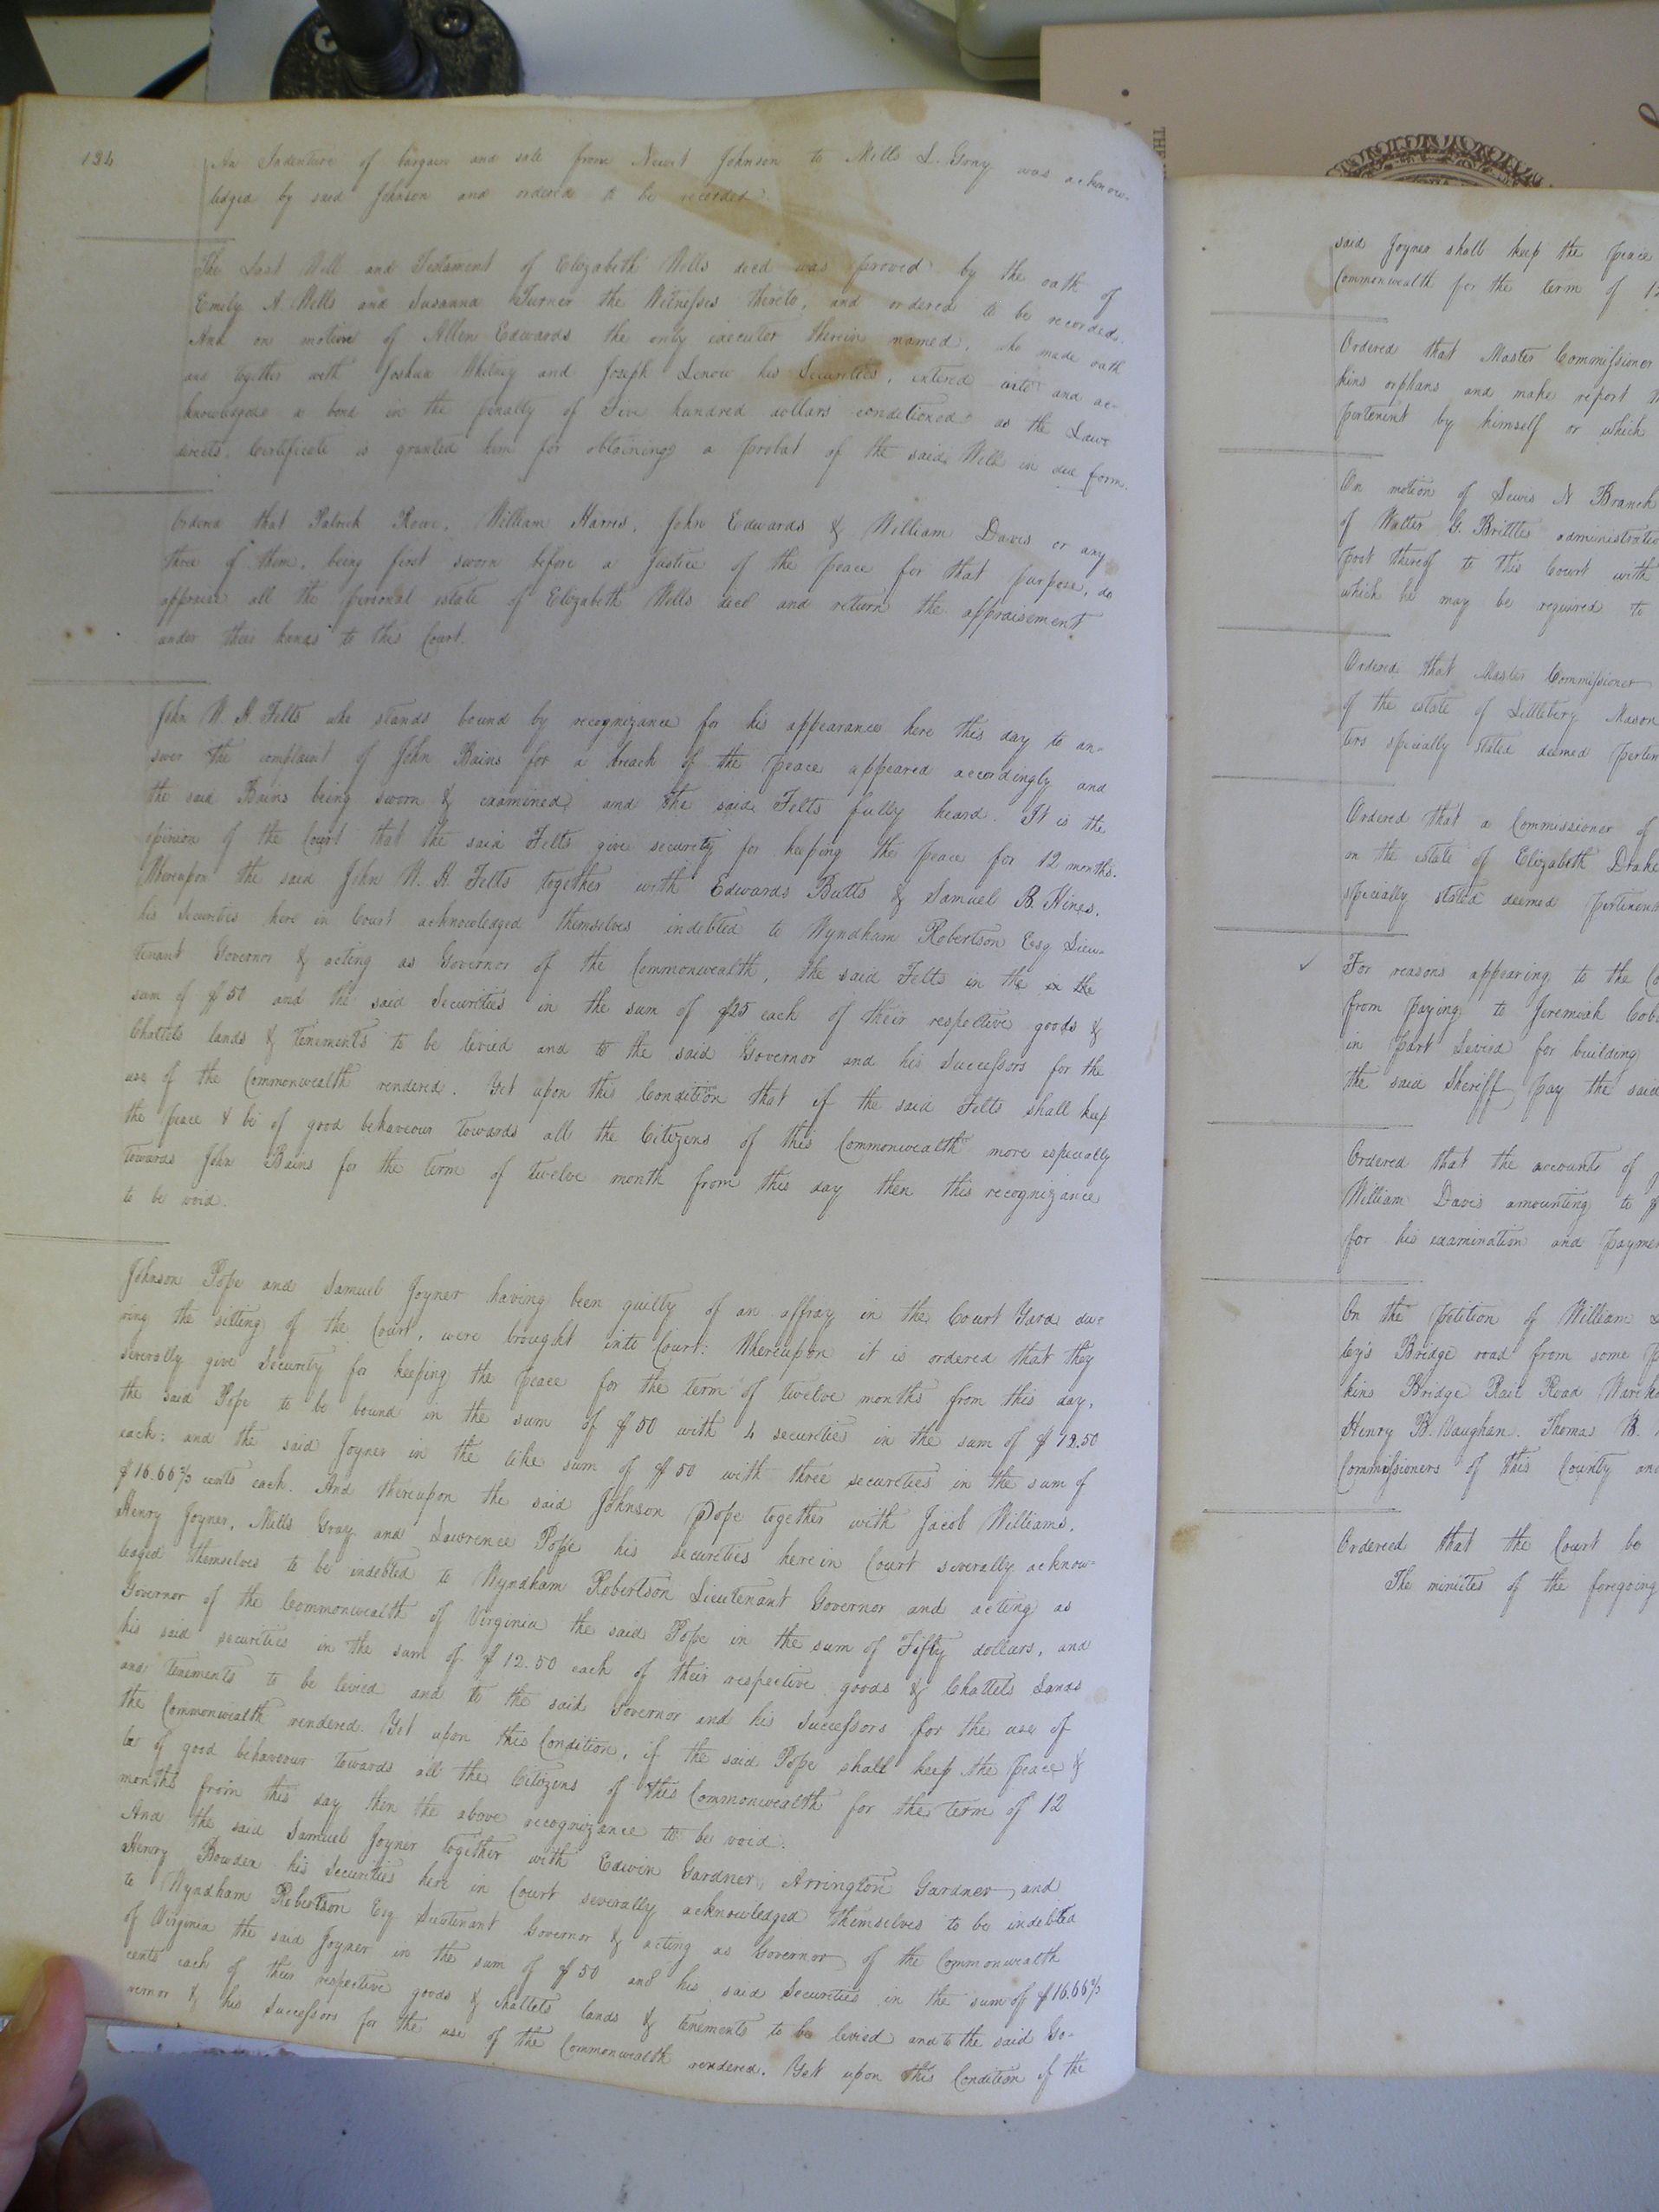 An Indenture of bargain and sale from Newit Johnson to Mills L. Gray was acknow-
ledged by said Johnson and ordered to be recorded.
The Last Will and Testament of Elizabeth Wells decd was proved by the oath of
Emily A. Wells and Susanna Turner the Witnesses thereto, and ordered to be recorded.
And on motion of Allen Edwards the only executor therein named, who made oath
and together with Joshua Whitney and Joseph Lenow his Securities, entered into and ac-
knowledged a bond in the penalty of Five hundred dollars conditioned as the Law
directs. Certificate is granted him for obtaining a probat of the said Will in due form.
Ordered that Patrick Rowe, William Harris, John Edwards & William Davis or any
three of them, being first sworn before a Justice of the peace for that purpose, do
appraise all the personal estate of Elizabeth Wells decd and return the appraisement
under their hands to this Court.
John W. H. Felts who stands bound by recognizance for his appearance here this day to an-
swer the complaint of John Bains for a breach of the peace appeared accordingly and
the said Bains being sworn & examined and the said Felts fully heard. It is the
opinion of the Court that the said Felts give security for keeping the peace for 12 months.
Whereupon the said John W. H. Felts together with Edwards Butts & Samuel B. Hines,
his Securities here in Court acknowledged themselves indebted to Wyndham Robertson Esq Lieu-
tenant Governor & acting as Governor of the Commonwealth, the said Felts in the in the
sum of $50 and the said Securities in the sum of $25 each of their respective goods &
Chattels lands & tenements to be levied and to the said Governor and his Successors for the
use of the Commonwealth rendered. Yet upon this Condition that if the said Felts shall keep
the peace & be of good behaveour towards all the Citizens of this Commonwealth more especially
towards John Bains for the term of twelve month from this day then this recognizance
to be void.
Johnson Pope and Samuel Joyner having been guilty of an affray in the Court Yard du-
ring the sitting of the Court, were brought into Court: Whereupon it is ordered that they
severally give Security for keeping the peace for the term of twelve months from this day,
the said Pope to be bound in the sum of $50 with 4 securities in the sum of $12.50
each: and the said Joyner in the like sum of $50 with three securities in the sum of
$16.66⅔ cents each. And thereupon the said Johnson Pope together with Jacob Williams,
Henry Joyner, Mills Gray and Lawrence Pope his securities here in Court severally acknow-
ledged themselves to be indebted to Wyndham Robertson Lieutenant Governor and acting as
Governor of the Commonwealth of Virginia the said Pope in the sum of Fifty dollars, and
his said securities in the sum of $12.50 each of their respective goods & Chattels Lands
and tenements to be levied and to the said Governor and his Successors for the use of
the Commonwealth rendered. Yet upon this Condition, if the said Pope shall keep the peace &
be of good behaveour towards all the Citizens of this Commonwealth for the term of 12
months from this day then the above recognizance to be void.
And the said Samuel Joyner together with Edwin Gardner, Arrington Gardner and
Henry Bowden his Securities here in Court severally acknowledged themselves to be indebted
to Wyndham Robertson Esq Lieutenant Governor & acting as Governor of the Commonwealth
of Virginia the said Joyner in the sum of $50 and his said Securities in the sum of $16.66⅔
cents each of their respective goods & Chattels lands & tenements to be levied and to the said Go-
vernor & his Successors for the use of the Commonwealth rendered. Yet upon this Condition if the
said Joyner shall keep the peace
Commonwealth for the term of 12
Ordered that Master Commissioner
kins orphans and make report
pertenent by himself or which
On motion of Lewis N Branch
of Walter G. Brittles
port thereof to this Court with
which he may be required to
Ordered that Master Commissioner
of the estate of Littlebery Mason
ters specially stated deemed
Ordered that a Commissioner of
on the estate of Elizabeth Drake
specially stated deemed
For reasons appearing to the
from paying to Jeremiah
in part Levied for building
the said Sheriff pay the said
Ordered that the accounts of
William Davis amounting to $
for his examination and
On the petition of William
ley's Bridge road from some
kins Bridge Rail Road
Henry B. Vaughan. Thomas B.
Commissioners of this County and
Ordered that the Court be
The minutes of the foregoing
THE